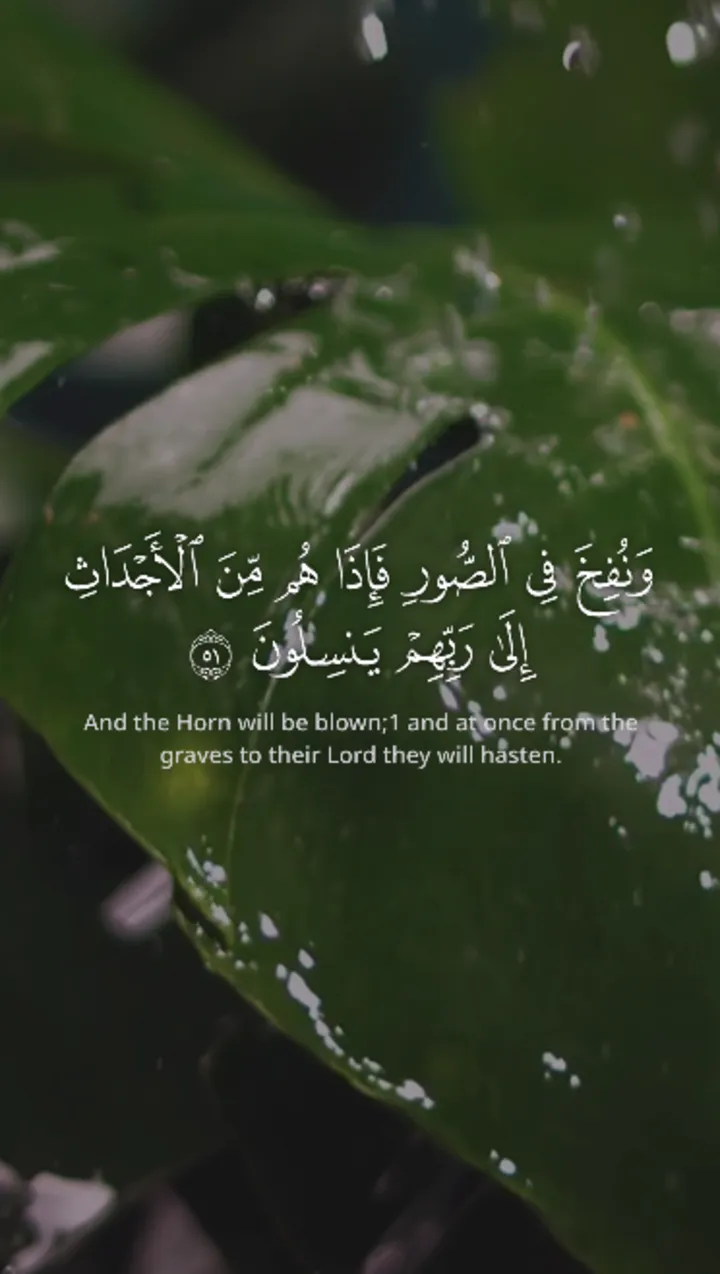 وَنُفِخَ فِي ٱلصُّورِ فَإِذَا هُم مِّنَ ٱلۡأَجۡدَاثِ
إِلَىٰ رَبِّهِمۡ يَنسِلُونَ ٥١
And the Horn will be blown;1 and at once from the
graves to their Lord they will hasten.